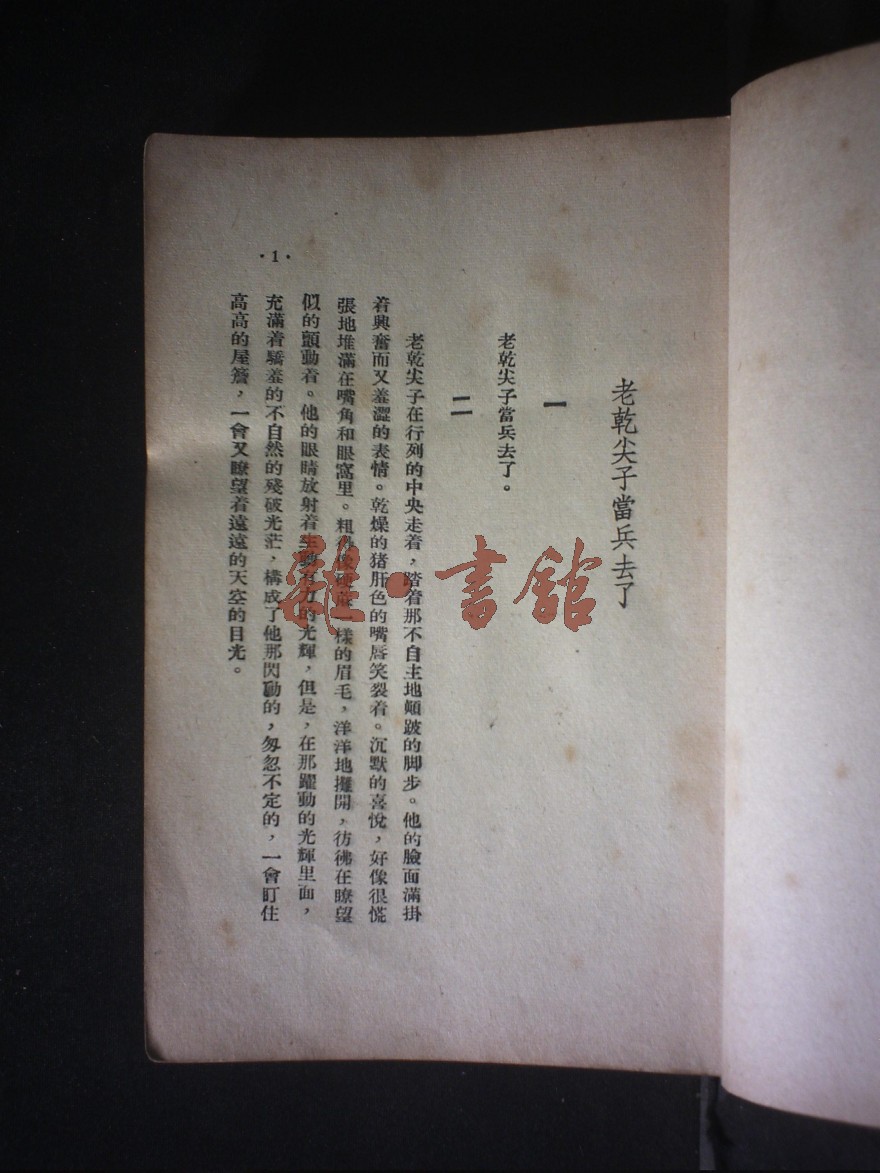 老乾尖子當兵去了
一
老乾尖子當兵去了。
二
老乾尖子在行列的中央走着，踏着那不自主地顛跛的脚步。他的臉面滿掛
着興奮而又羞澀的表情。乾燥的猪肝色的嘴唇笑裂着。沉默的喜悅，好像很慌
張地堆滿在嘴角和眼窩里。粗得像硬 一樣的眉毛，洋洋地攤開，彷彿在瞭望
似的顫動着。他的眼睛放射着生動有力的光輝，但是，在那躍動的光輝里面，
充滿着驕羞的不自然的殘破光茫，構成了他那閃動的，匆忽不定的，一會盯住
高高的屋簷，一會又瞭望着遠遠的天空的目光。
·1·
雜·書館